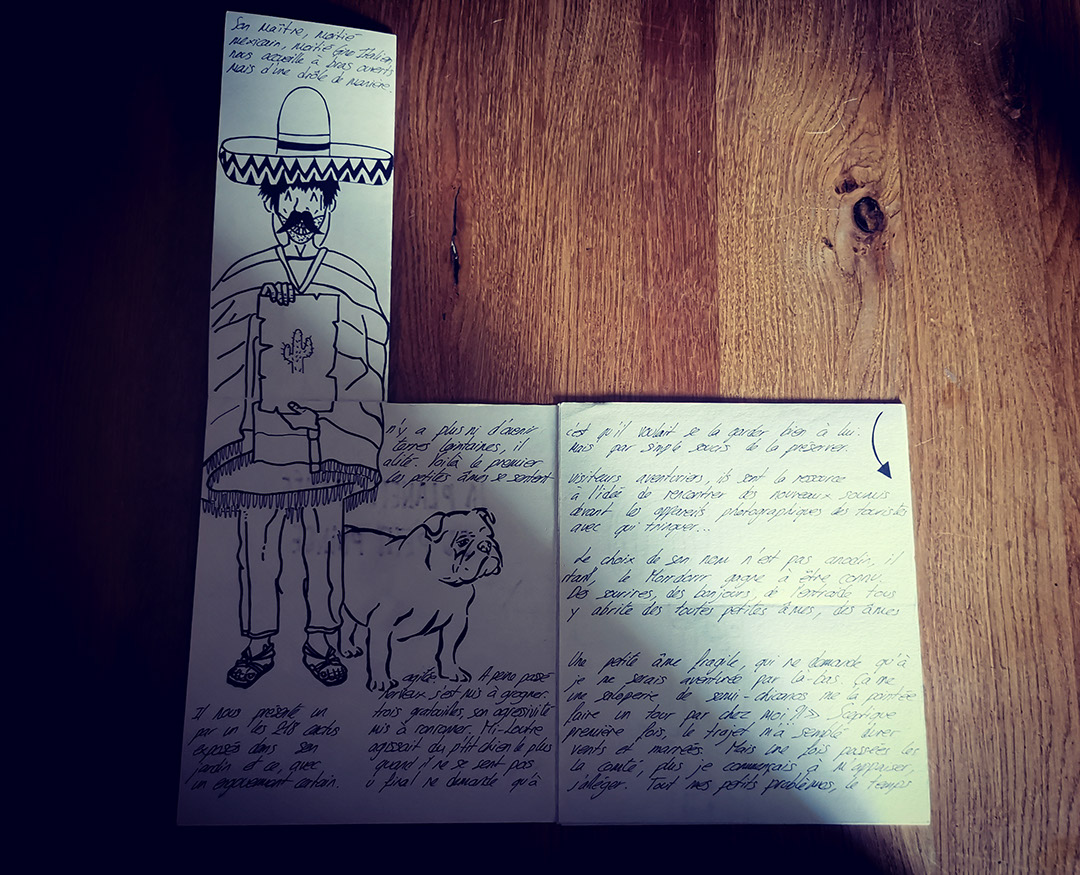 Son Maître, Moitié
mexicain, Moitié Gino l'Italien,
nous accueille à bras ouverts
Mais d'une drôle de manière.
n'y a plus ni d'avenir
terres lointaines, il
alité. Voilà le premier
les petites âmes se sentent
Il nous présente un
par un les cactus
exposés dans son
jardin et ce, avec
un engouement certain.
agité. A peine passé
s'est mis à grogner.
trois gratouilles, son agressivité
mis à ronronner. Mi-Loutre
agissait du p'tit chien le plus
quand il ne se sent pas
u final ne demande qu'à
c'est qu'il voulait se la garder bien à lui.
Mais par simple soucis de la préserver.
visiteurs aventuriers, ils sont la ressource
à l'idée de rencontrer des nouveaux
devant les appareils photographiques des touristes
avec qui trinquer...
Le choix de son nom n'est pas anodin, il
tant, le gagne à être connu.
Des sourires, des bonjours, de l'entraide tous
y abrite des toutes petites âmes, des âmes
Une petite âme fragile, qui ne demande qu'à
je ne serais aventurée par là-bas. Ça me
une de semi-chicanos me la pointée
faire un tour par chez moi ?! » Sceptique
première fois, le trajet m'a semblé durer
vents et marées. Mais une fois passées les
la comté, plus je commençais à m'appaiser,
s'alléger. Tout mes petits problèmes, le temps